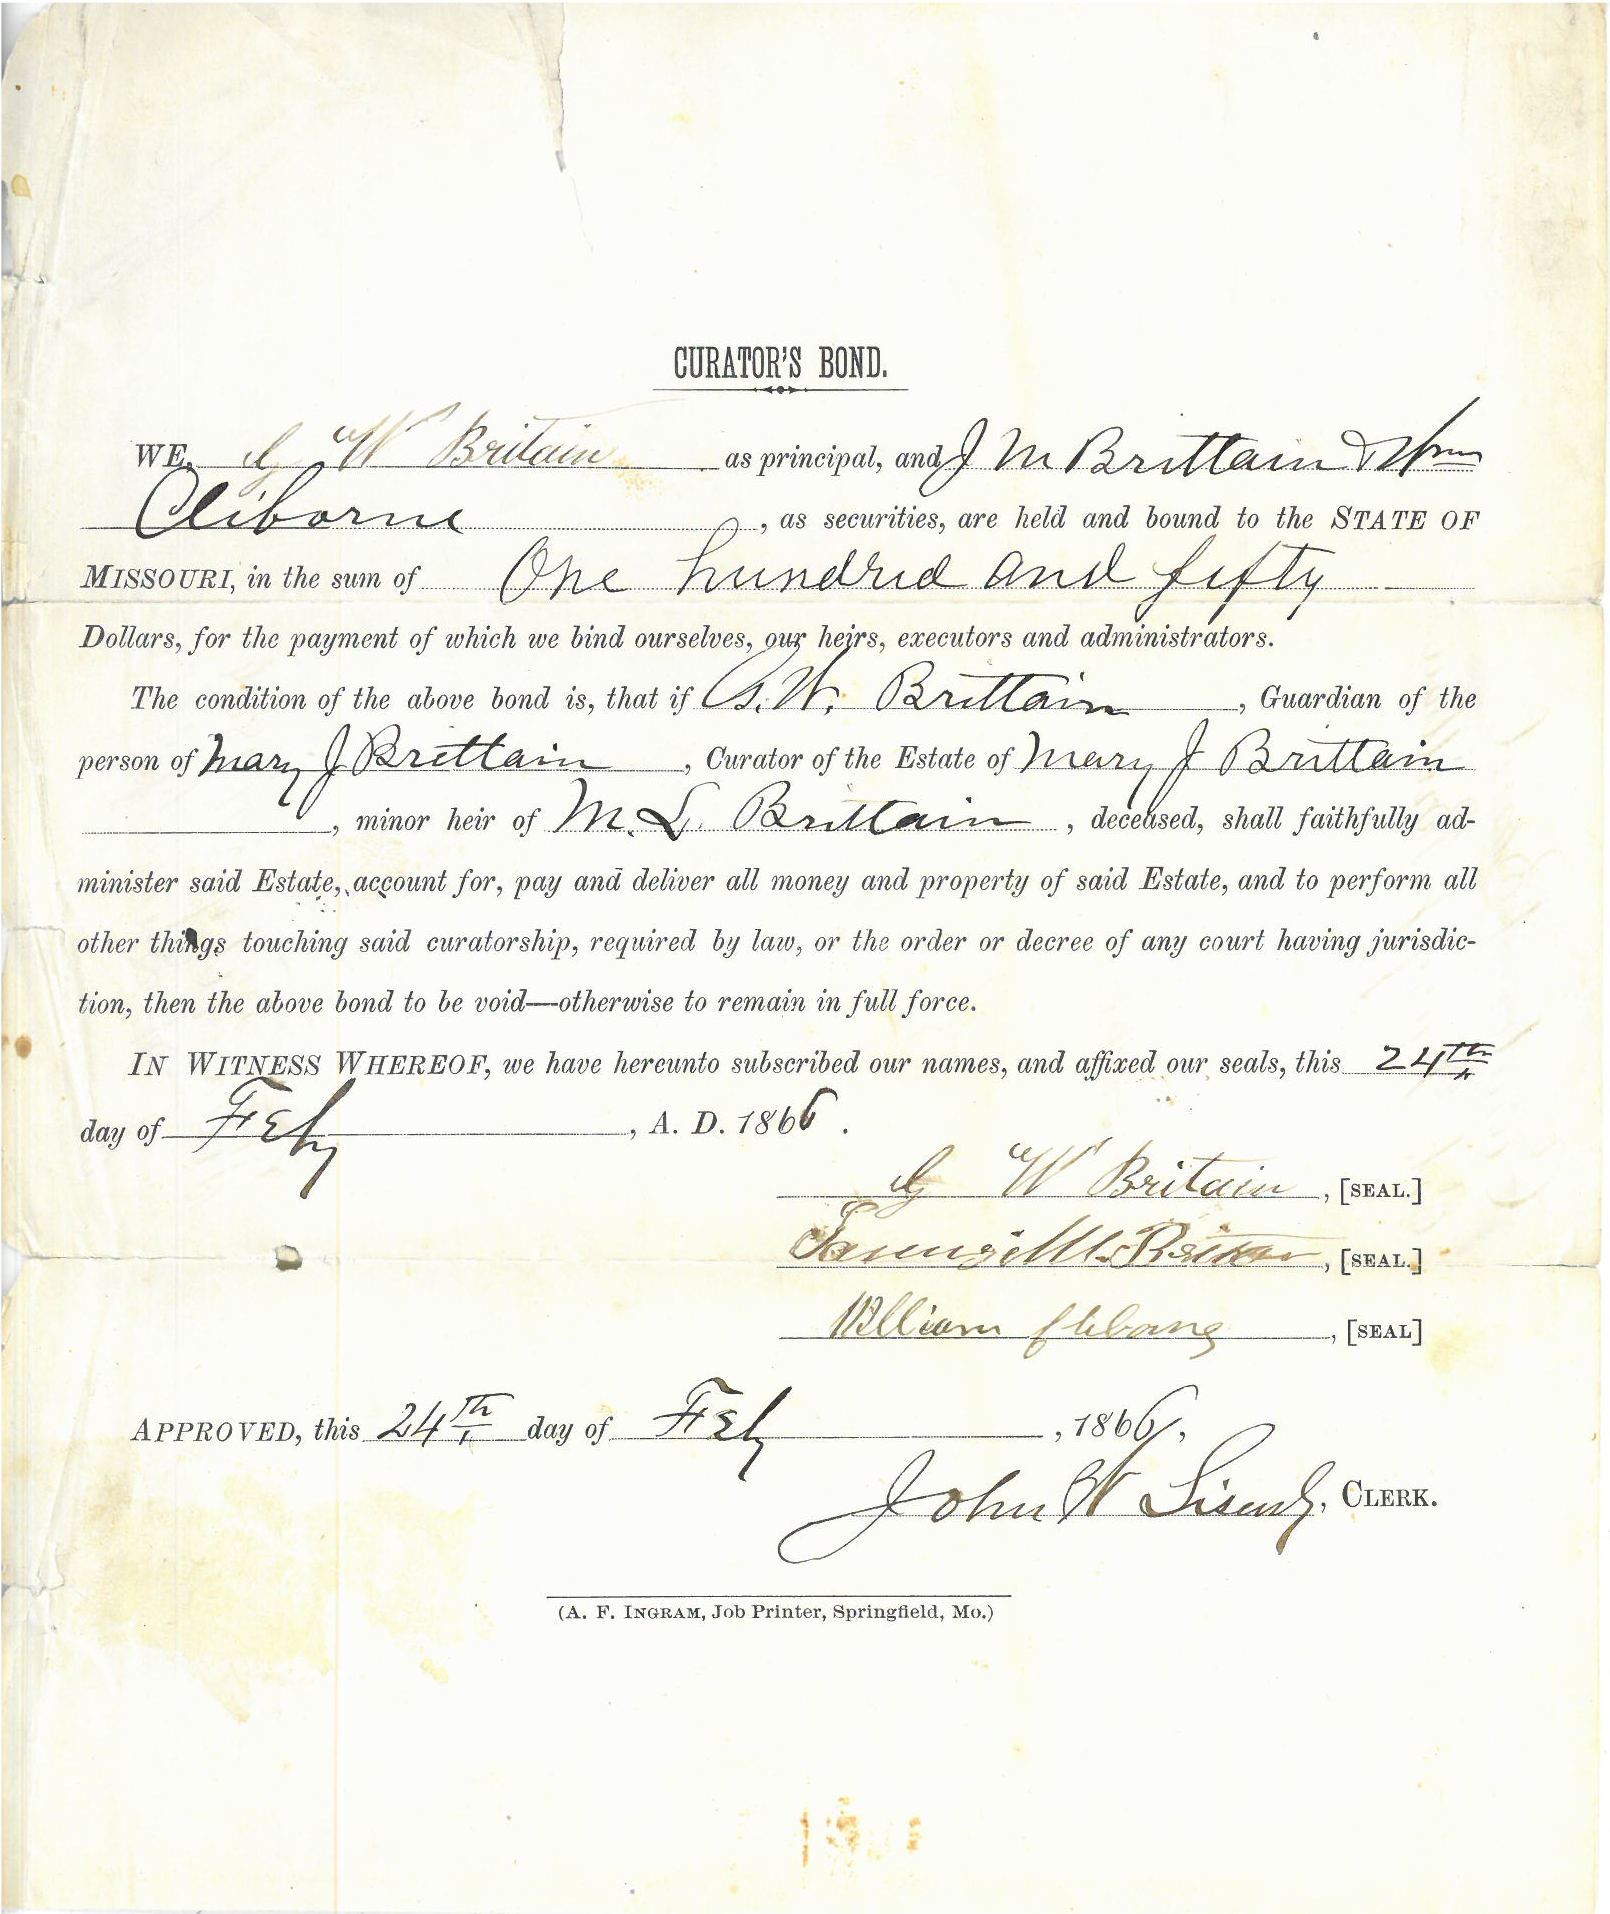 CURATOR'S BOND.
WE, G W Britain as principal, and J M Brittain & Wm
Cliborne, as securities, are held and bound to the STATE OF
MISSOURI, in the sum of One hundred and fifty
Dollars, for the payment of which we bind ourselves, our heirs, executors and administrators.
The condition of the above bond is, that if G. W. Brittain, Guardian of the
person of Mary J Brittain, Curator of the Estate of Mary J Brittain
, minor heir of M. L. Brittain, deceased, shall faithfully ad-
minister said Estate, account for, pay and deliver all money and property of said Estate, and to perform all
other things touching said curatorship, required by law, or the order or decree of any court having jurisdic-
tion, then the above bond to be void—otherwise to remain in full force.
IN WITNESS WHEREOF, we have hereunto subscribed our names, and affixed our seals, this 24th
day of Feby, A. D. 1866.
G W Britain, [SEAL.]
M. [SEAL.]
William Clibone, [SEAL]
APPROVED, this 24th day of Feby, 1866.
John W Lisenby, CLERK.
(A. F. INGRAM, Job Printer, Springfield, Mo.)